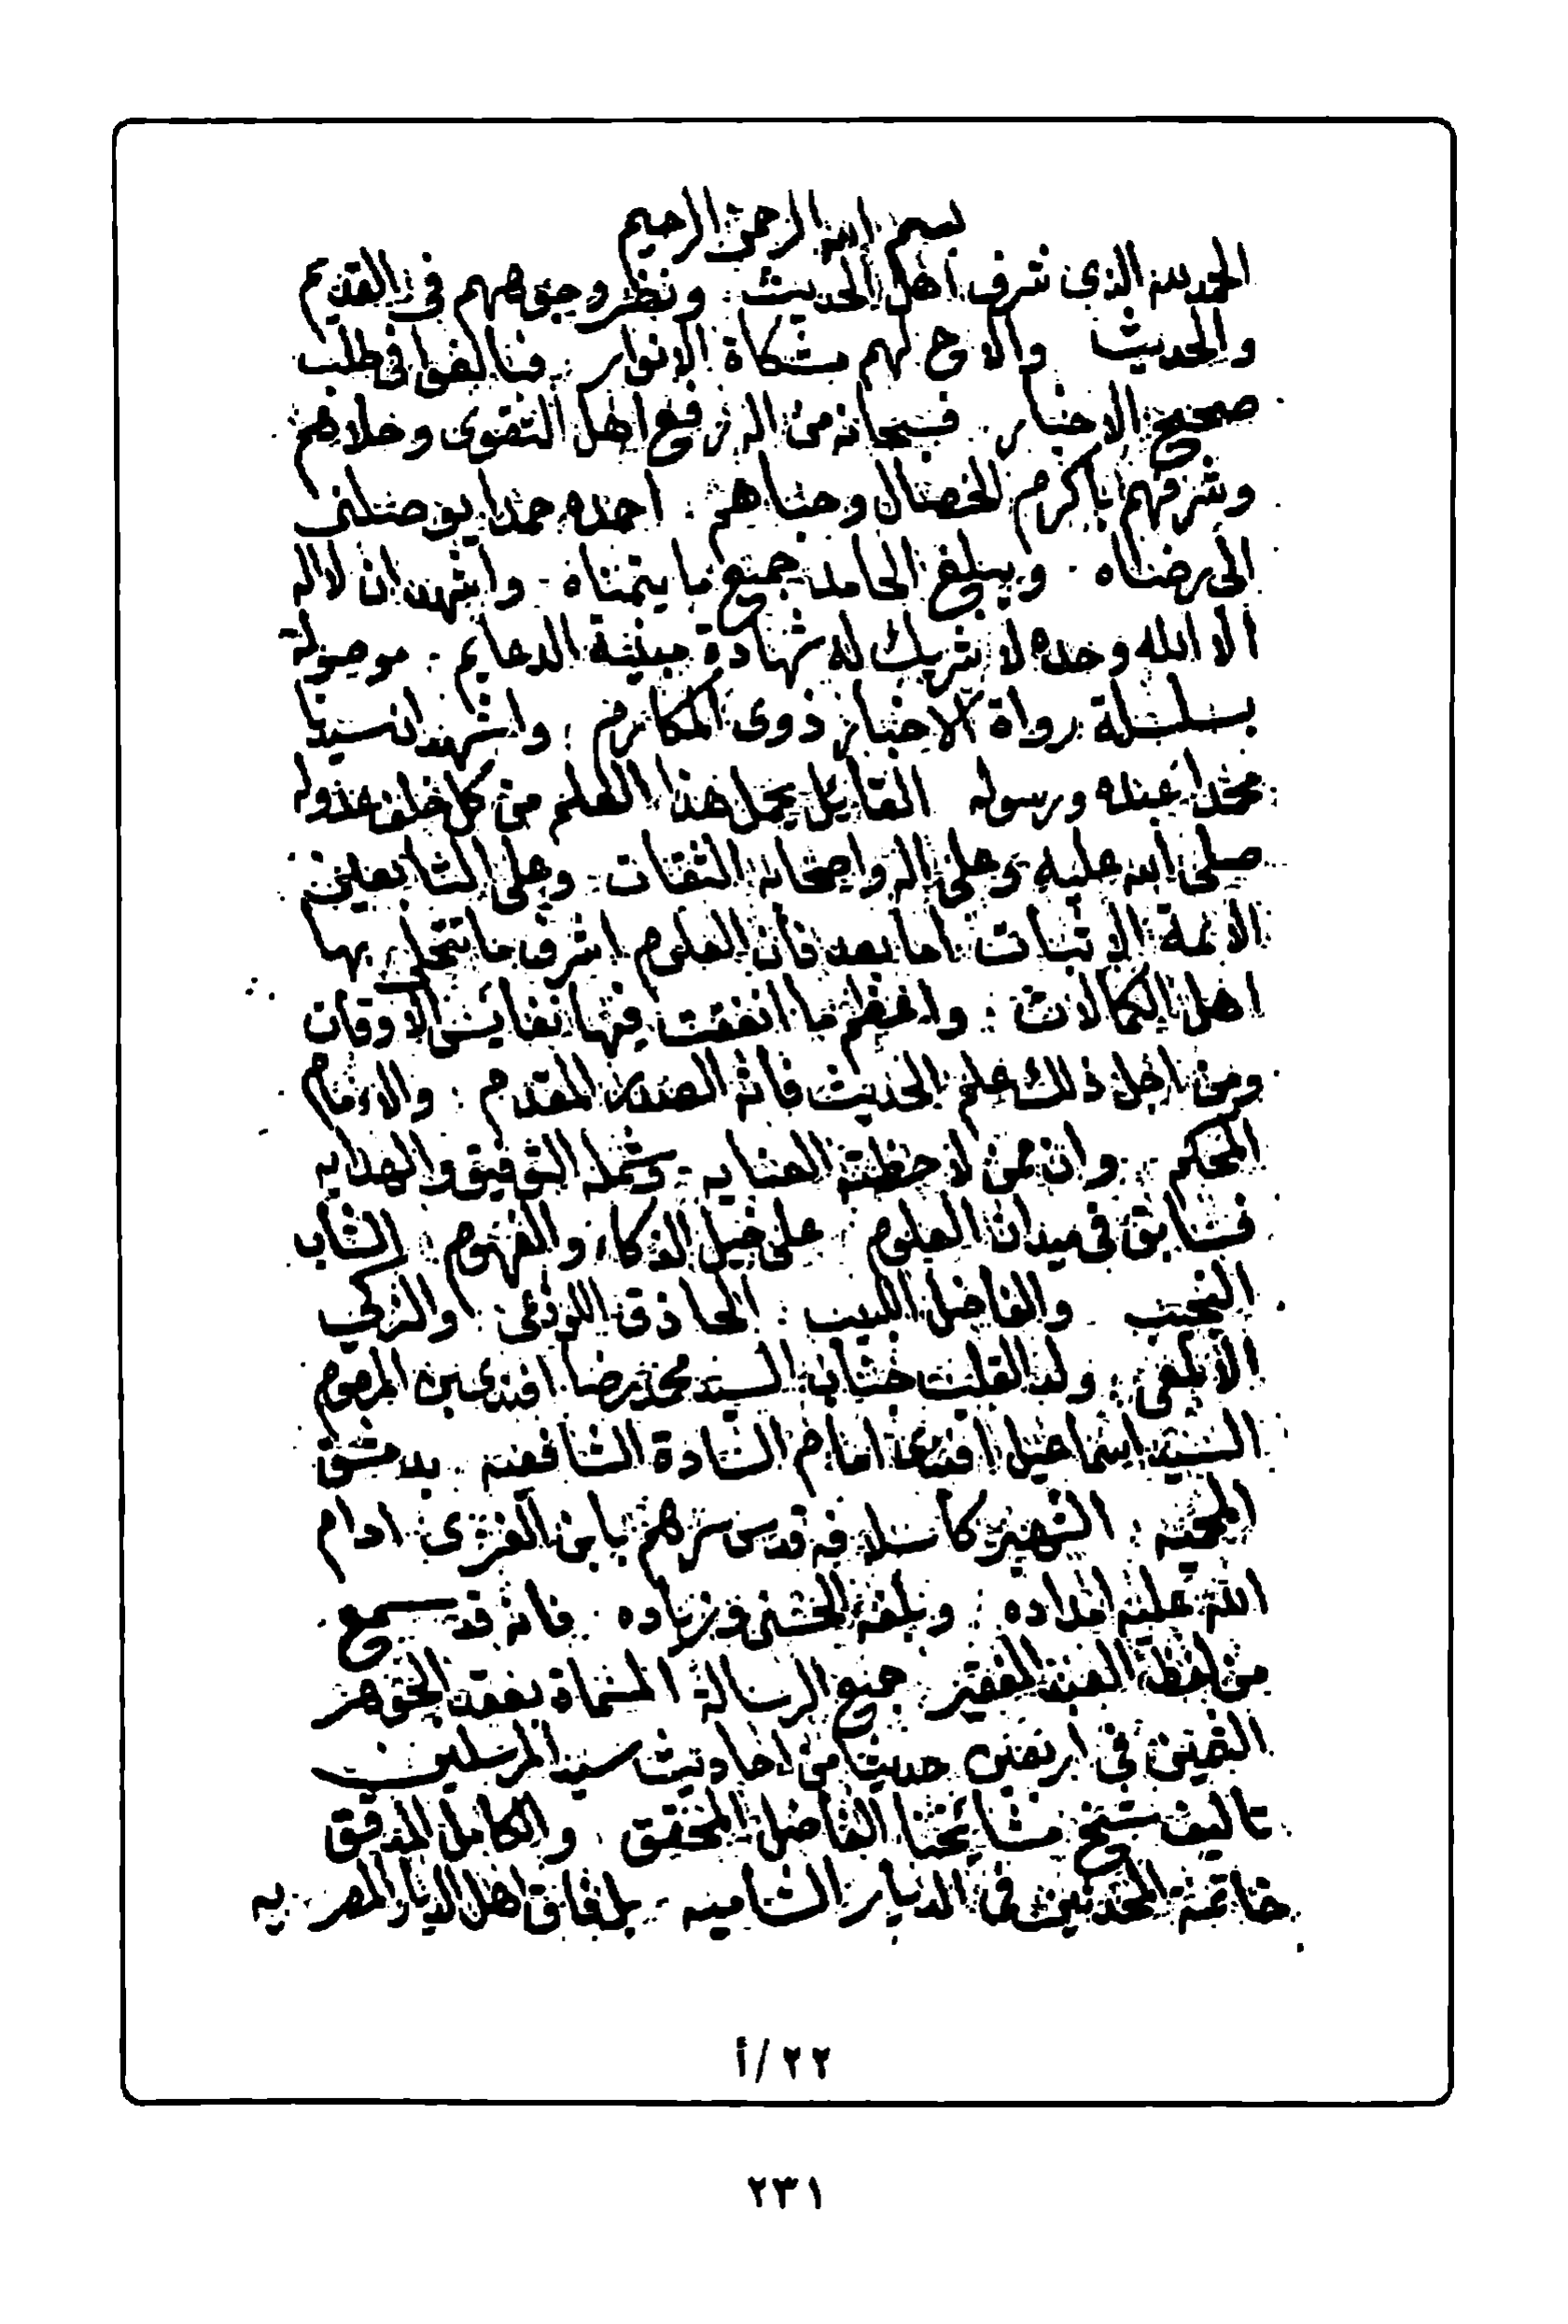 بسم الله الرحمن الرحيم
الحمد لله الذى شرف اهل الحديث ونضر وجوههم فى القديم
والحديث والاح لهم مشكاة الانوار فبالغوا فى طلب
صحيح الاخبار فسبحانه من اله رفع اهل التقوى وحلاهم
وشرفهم باكرم الخصال وحباهم احمده حمدا يوصلنى
الى رضاه ويبلغ الحامد جميع ما يتمناه واشهد ان لا اله
الا الله وحده لا شريك له شهادة مبنية الدعايم موصولة
بسلسلة رواة الاخبار ذوى المكارم واشهد ان سيدنا
محمدا عبده ورسوله القايل يحمل هذا العلم من كل خلف عدوله
صلى الله عليه وعلى اله واصحابه الثقات وعلى التابعين
الائمة الاثبات اما بعد فان العلوم اشرف ما تتحلى بها
اهل الكمالات واعظم ما انفقت فيها نفايس الاوقات
ومن اجل ذلك علم الحديث فانه الصدر المقدم والامام
المحكم وان ممن لاحظته العنايه وشمله التوفيق والهدايه
فسابق فى ميدان العلوم على خيل الذكاء والفهوم الشاب
النجيب والفاضل اللبيب الحاذق اللوذعى والزكى
الالمعى ولد القلب جناب السيد محمد رضا افندى بن المرحوم
السيد اسماعيل افندى امام السادة الشافعيه بدمشق
المحميه الشهير كاسلافه قدس سرهم بابن الغزى ادام
الله عليه امداده وبلغه الحسنى وزياده فانه قد سمع
من لفظ العبد الفقير جميع الرسالة المسماة بعقد الجوهر
الثمين فى اربعين حديثا من احاديث سيد المرسلين
تاليف شيخ مشائخنا الفاضل المحقق والكامل المدقق
خاتمة المحدثين فى الديار الشاميه بل فاق اهل الديار المصريه
٢٢/أ
٢٣١